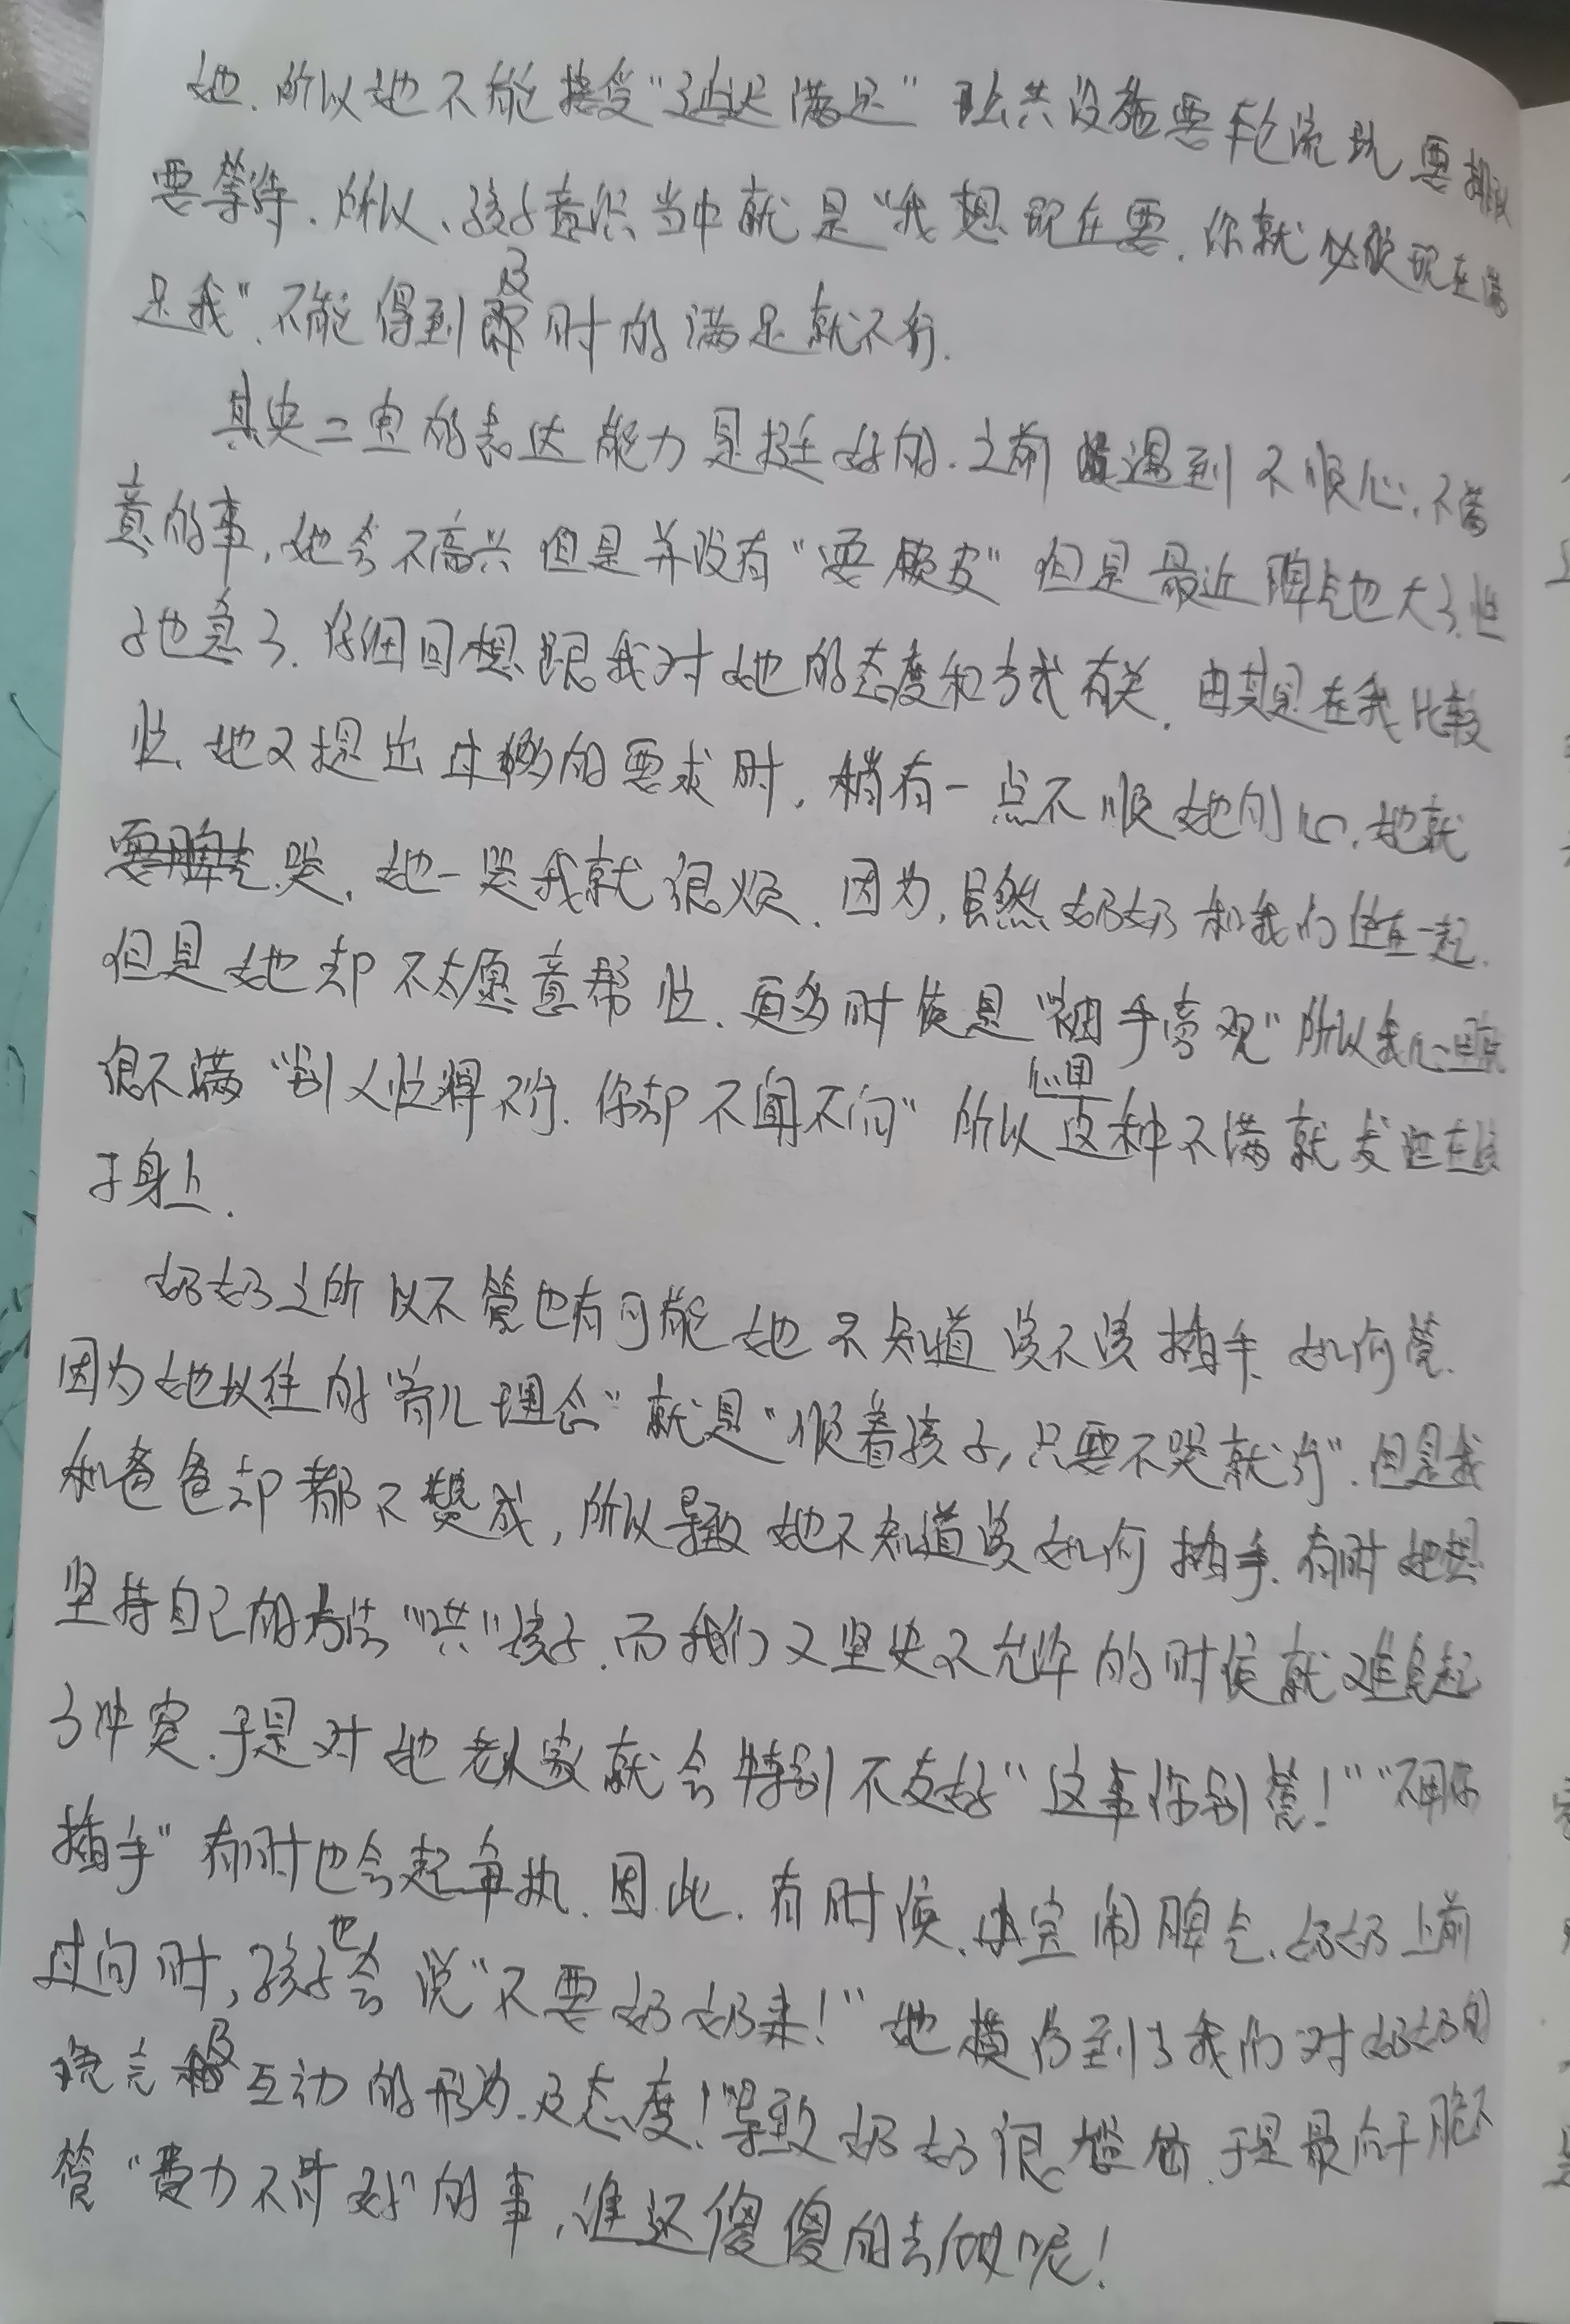 她.所以她不能接受"延迟满足"公共设施要轮流玩 要排队
要等待.所以、孩子意识当中就是"我想现在要.你就必须现在满
足我".不能得到及时的满足就不行.
其实二宝的表达能力是挺好的.之前遇到不顺心、不满
意的事,她会不高兴但是并没有"耍赖皮"但是最近脾气也大了.性
子也急了.仔细回想跟我对她的态度和方式有关.由其是在我比较
忙、她又提出过多的要求时,稍有一点不顺她的心.她就
哭,她一哭我就很烦.因为,虽然奶奶和我们住在一起.
但是她却不太愿意帮忙.更多时候是"袖手旁观"所以我心里
很不满"别人忙得不行.你却不闻不问"所以心里这种不满就发泄在孩
子身上.
奶奶之所以不管也有可能她不知道该不该插手.如何管.
因为她以往的"育儿理念"就是"顺着孩子,只要不哭就行".但是我
和爸爸却都不赞成,所以导致她不知道该如何插手.有时她想
坚持自己的方法"哄"孩子.而我们又坚决不允许的时候就难免起
了冲突.于是对她老人家就会特别不友好"这事你别管!""不用你
插手"有时也会起争执.因此.有时候、小宝闹脾气、奶奶上前
过问时,孩子也会说"不要奶奶来!"她模仿到了我们对奶奶的
语言及互动的形为.及态度!导致奶奶很尴尬.于是最后干脆不
管"费力不讨好"的事,谁还傻傻的去做呢!